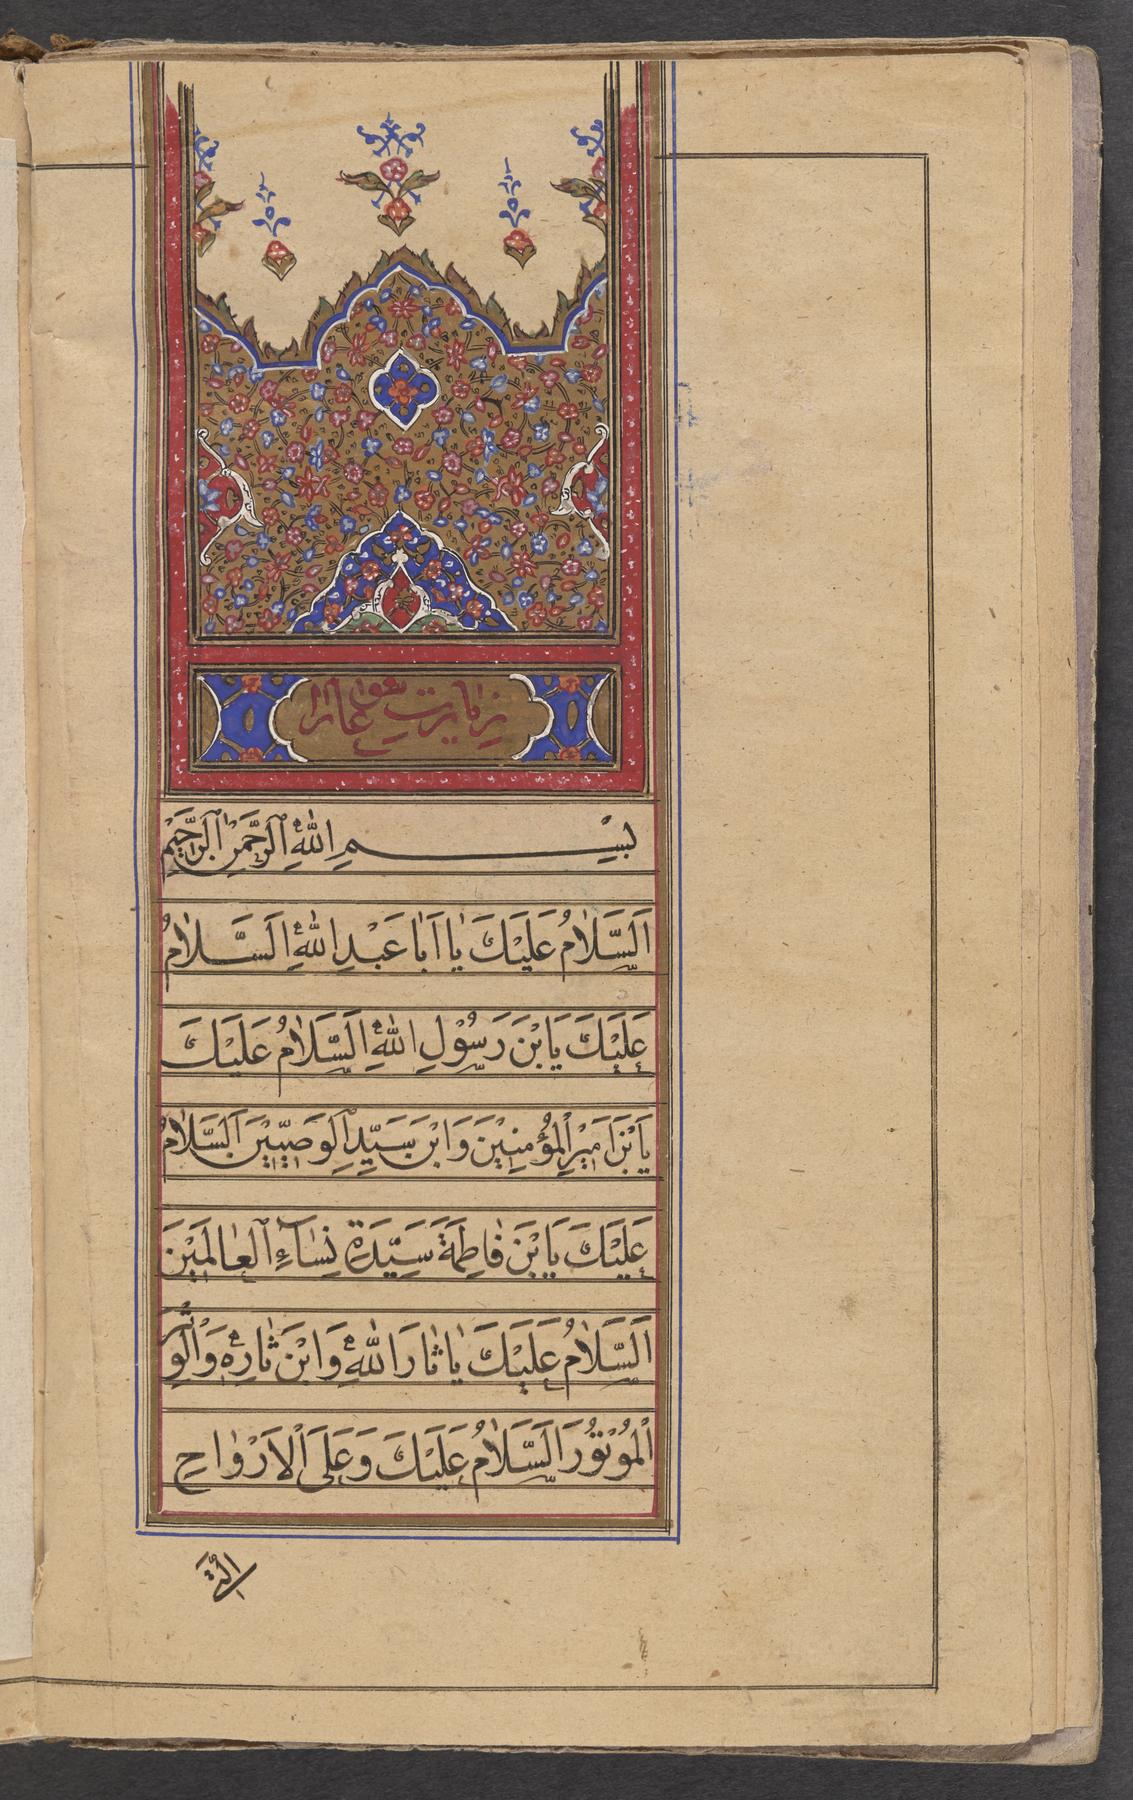 زیارت عاشورا
بِسْمِ اللهِ الرَّحْمٰنِ الرَّحِيْمِ
اَلسَّلَامُ عَلَيْكَ يَا اَبَا عَبْدِ اللهِ اَلسَّلَامُ
عَلَيْكَ يَابْنَ رَسُوْلِ اللهِ اَلسَّلَامُ عَلَيْكَ
يَابْنَ اَمِيْرِ الْمُؤْمِنِيْنَ وَابْنَ سَيِّدِ الْوَصِيّيْنَ اَلسَّلَامُ
عَلَيْكَ يَابْنَ فَاطِمَةَ سَيِّدَةِ نِسَآءِ الْعَالَمِيْنَ
اَلسَّلَامُ عَلَيْكَ يَا ثَارَ اللهِ وَابْنَ ثَارِهِ وَالْوِتْرَ
الْمُوْتُوْرَ اَلسَّلَامُ عَلَيْكَ وَعَلَى الْاَرْوَاحِ
الَّتِي